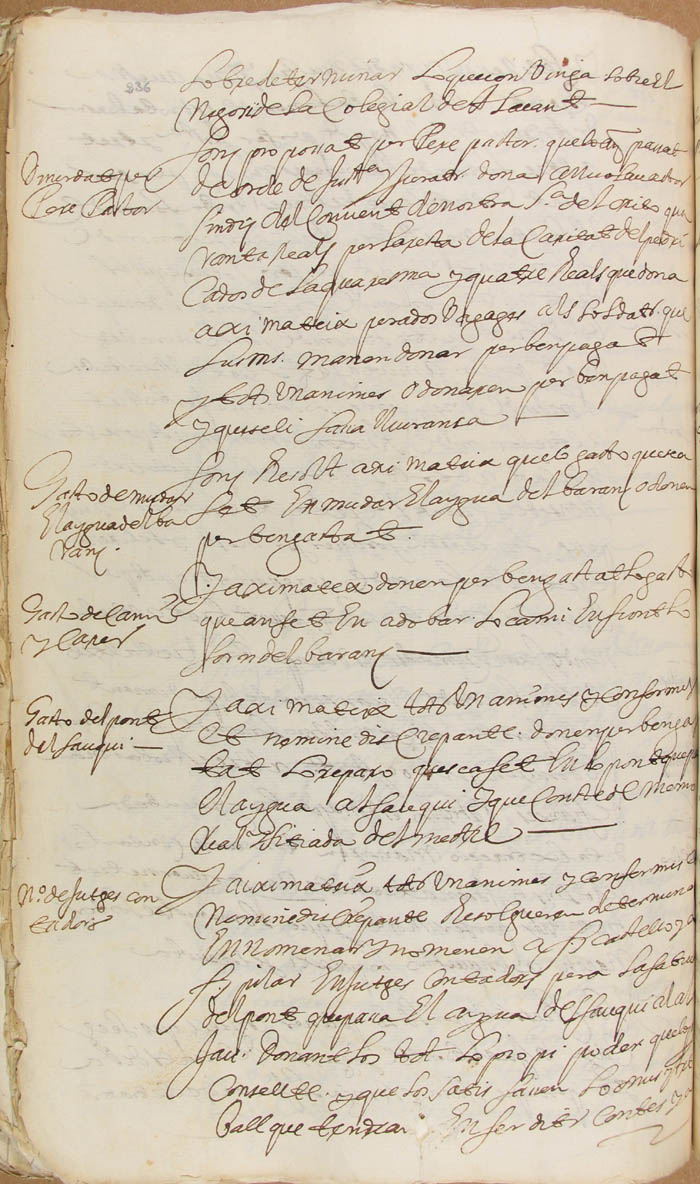 236
Sobre determinar lo que convinga sobre el
negoci de la Colegial de Alacant
D mermat per
Pere Pastor
fonc proposat per Pere pastor que lo añ passat
de orde de Justa y Jurats dona a Nicolau astor
sindich del Convent de nostra Sa del orito qua
ranta Reals per la resta de la Caritat del predi
cador de la quaresma y quatre Reals que dona
axi mateix per a dos bagages als soldats que
sus ms. manen donar per ben pagat
y tots unanimes o donaren per ben pagat
y que se li fasa lliuransa
Gasto de mudar
El aygua del ba
ranc
fonc Resolt axi mateix que lo gasto que sea
fet En mudar El aygua del baranc o donen
per ben gastat.
Gasto de Cami
y Caper
Y axi mateix donen per ben gastat lo gast
que an fet En adobar lo cami En front lo
forn del baranc
Gasto del pont
del fauqui
Y axi mateix tots unanimes y conformes
et nemine discrepante donen per benga
tat lo reparo que sea fet En lo pont que pasa
El aygua al fauqui y que Conste de memo
rial y sitiada del mestre
No. de Jutges con
tadors
Y axi mateix tots unanimes y conformes et
nemine discrepante Resolgueren determinar
En nomenar y nomenen a fr Castello y a
fr pilar En jutges Contadors pera la fabrica
del pont que pasa El aygua del fauqui al al
Jau. Donant los tot lo propi poder que lo
Consell te. y que los satis fasen lo onus y tre
ball que tendran En fer dits Contes y